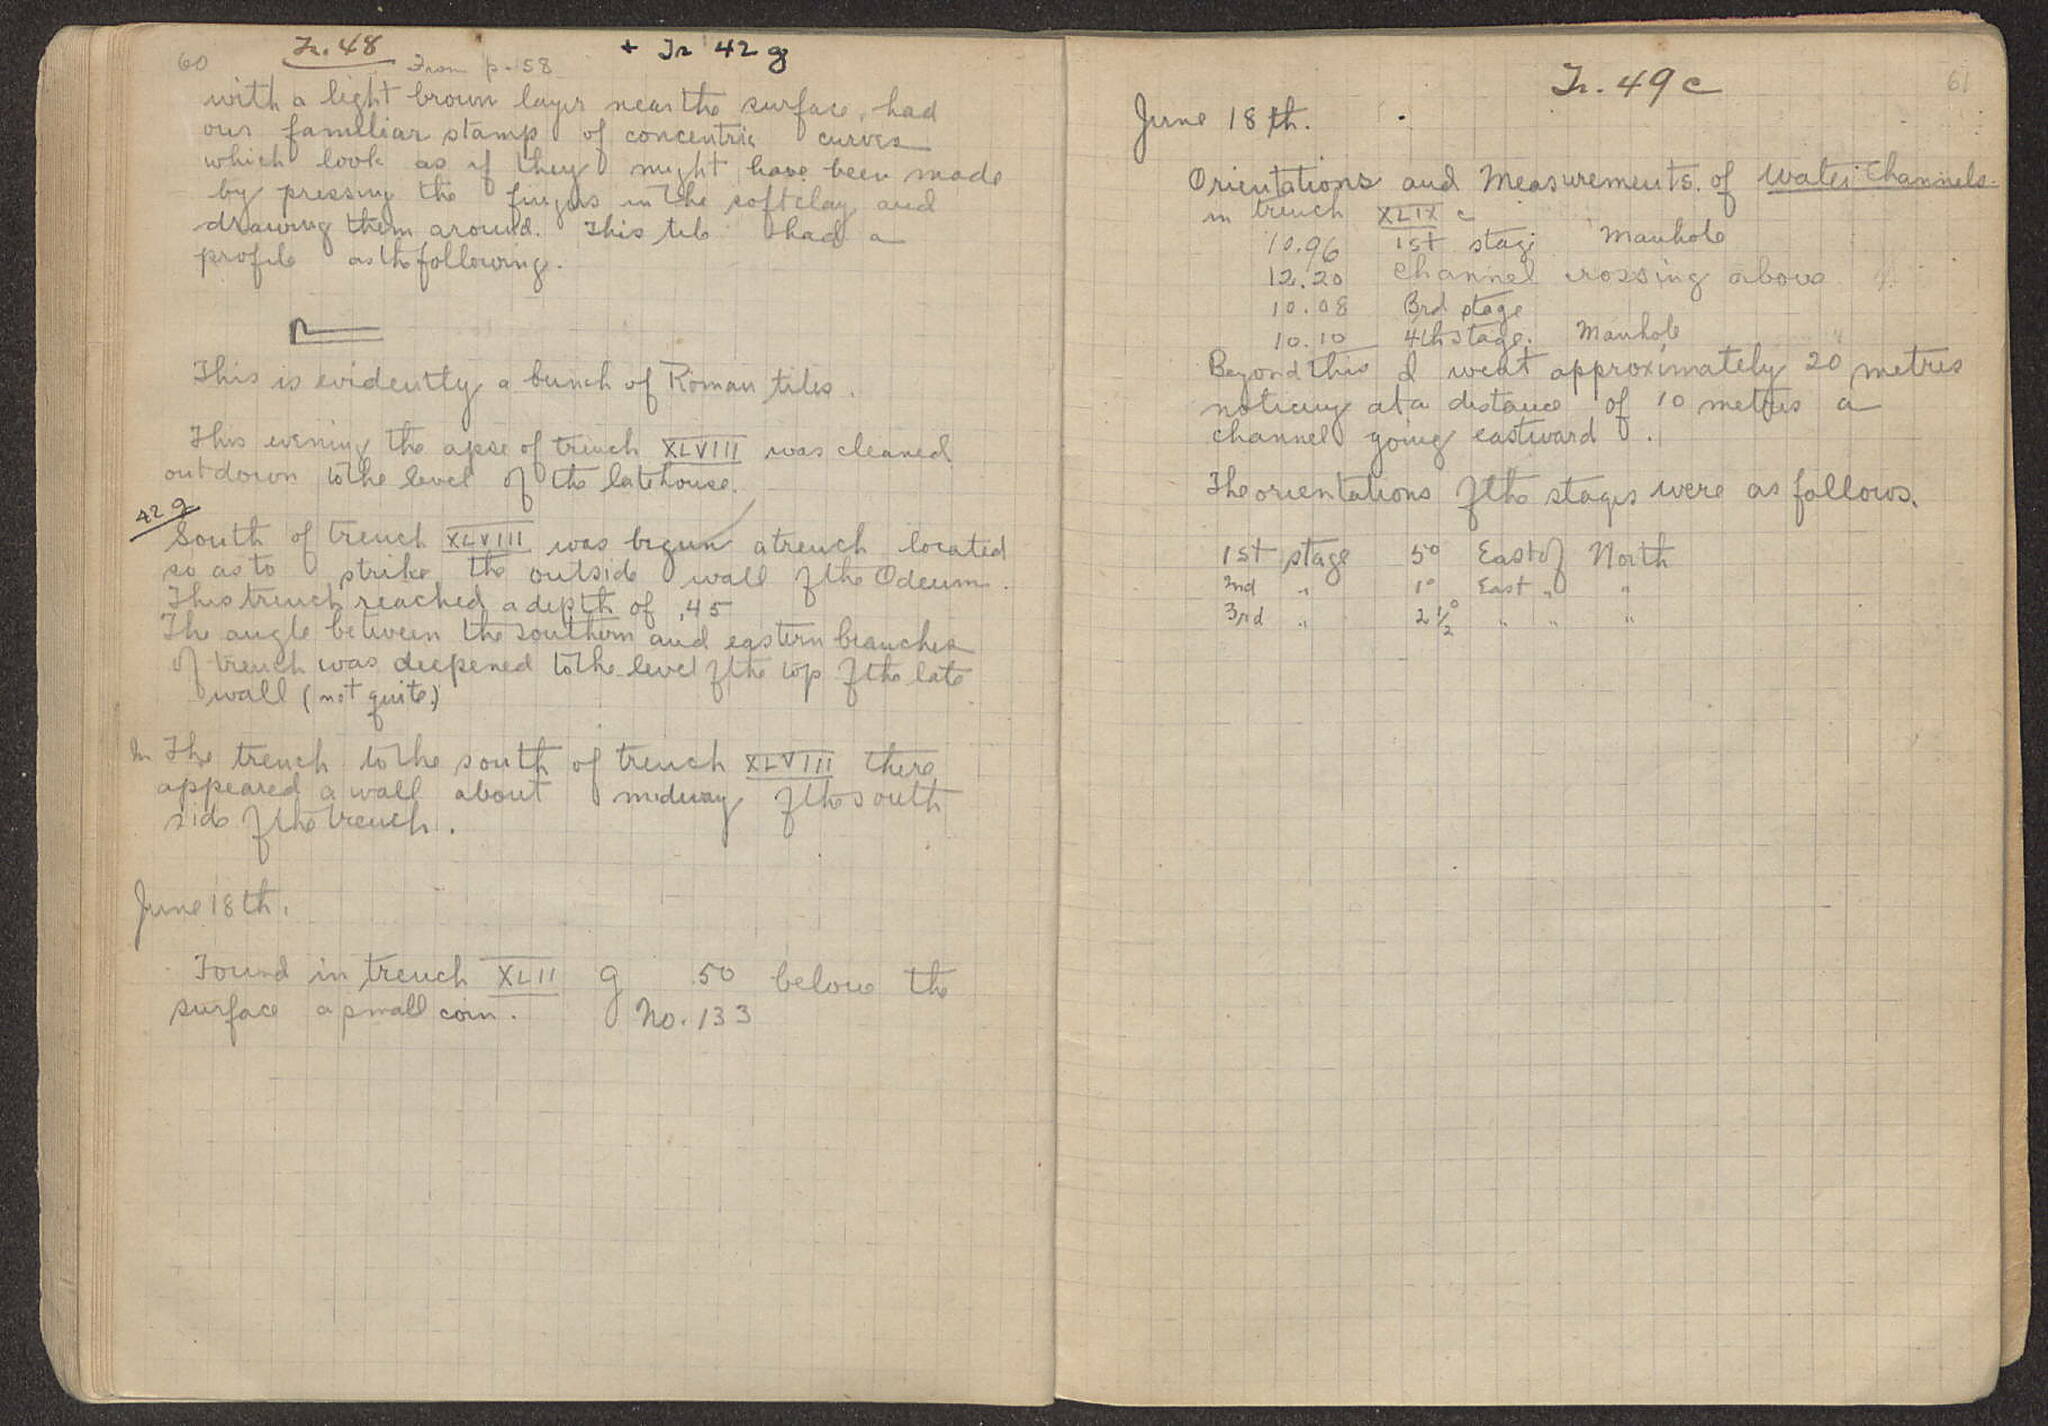 60
Tr. 48
From p. 58
+ Tr 42 g
with a light brown layer near the surface, had
our familiar stamp of concentric curves
which look as if they might have been made
by pressing the fingers in the soft clay and
drawing them around. This tile had a
profile as the following.
This is evidently a bunch of Roman tiles.
This evening the apse of trench XLVIII was cleaned
out down to the level of the late house.
42 g
South of trench XLVIII was begun a trench located
so as to strike the outside wall of the Odeum.
This trench reached a depth of .45
The angle between the southern and eastern branches
of trench was deepened to the level of the top of the late
wall (not quite.)
In The trench to the south of trench XLVIII there
appeared a wall about midway of the south
side of the trench.
June 18th.
Found in trench XLII g .50 below the
surface a small coin. No. 133
61
Tr. 49 c
June 18th.
Orientations and Measurements of Water Channels.
in trench XLIX c
10.96 1st stage Manhole
12.20 Channel crossing above
10.08 3rd stage
10.10 4th stage. Manhole
Beyond this I went approximately 20 metres
noticing at a distance of 10 metres a
channel going eastward.
The orientations of the stages were as follows.
1st stage 5° East of North
2nd " 1° East " "
3rd " 2 1/2° " " "